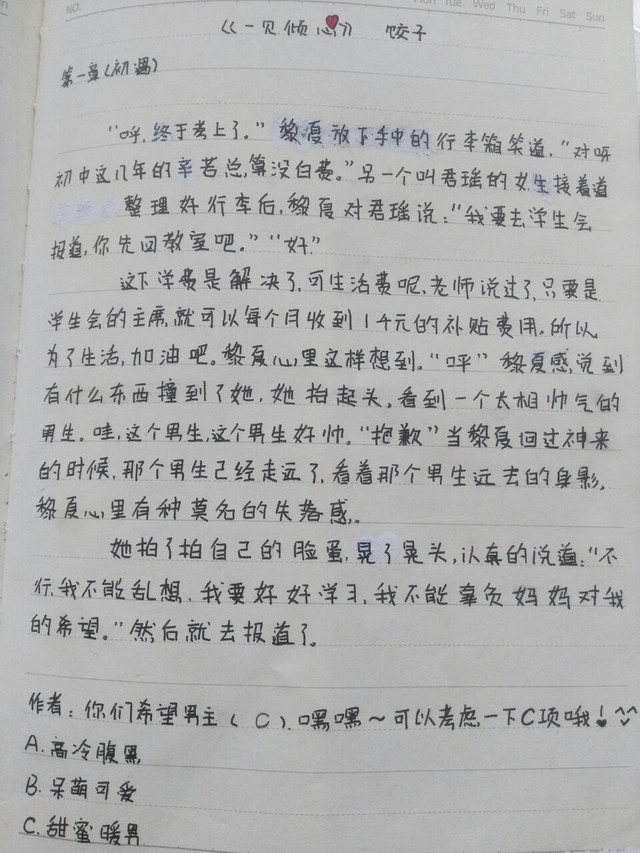 NO.
Mon Tue Wed Thu Fri Sat Sun
《一见倾心》 饺子
第一章(初遇)
“呼,终于考上了。”黎夏放下手中的行李箱笑道,“对呀
初中这几年的辛苦总算没白费。”另一个叫君瑶的女生接着道
整理好行李后,黎夏对君瑶说:“我要去学生会
报道,你先回教室吧。”“好”
这下学费是解决了,可生活费呢,老师说过了,只要是
学生会的主席,就可以每个月收到1千元的补贴费用,所以
为了生活,加油吧。黎夏心里这样想到。“呼”黎夏感觉到
有什么东西撞到了她,她抬起头,看到一个长相帅气的
男生。哇,这个男生,这个男生好帅。“抱歉”当黎夏回过神来
的时候,那个男生已经走远了,看着那个男生远去的身影,
黎夏心里有种莫名的失落感。
她拍了拍自己的脸蛋,晃了晃头,认真的说道:“不
行,我不能乱想,我要好好学习,我不能辜负妈妈对我
的希望。”然后就去报道了。
作者:你们希望男主(C),嘿嘿~可以考虑一下C项哦!^^
A.高冷腹黑
B.呆萌可爱
C.甜蜜暖男